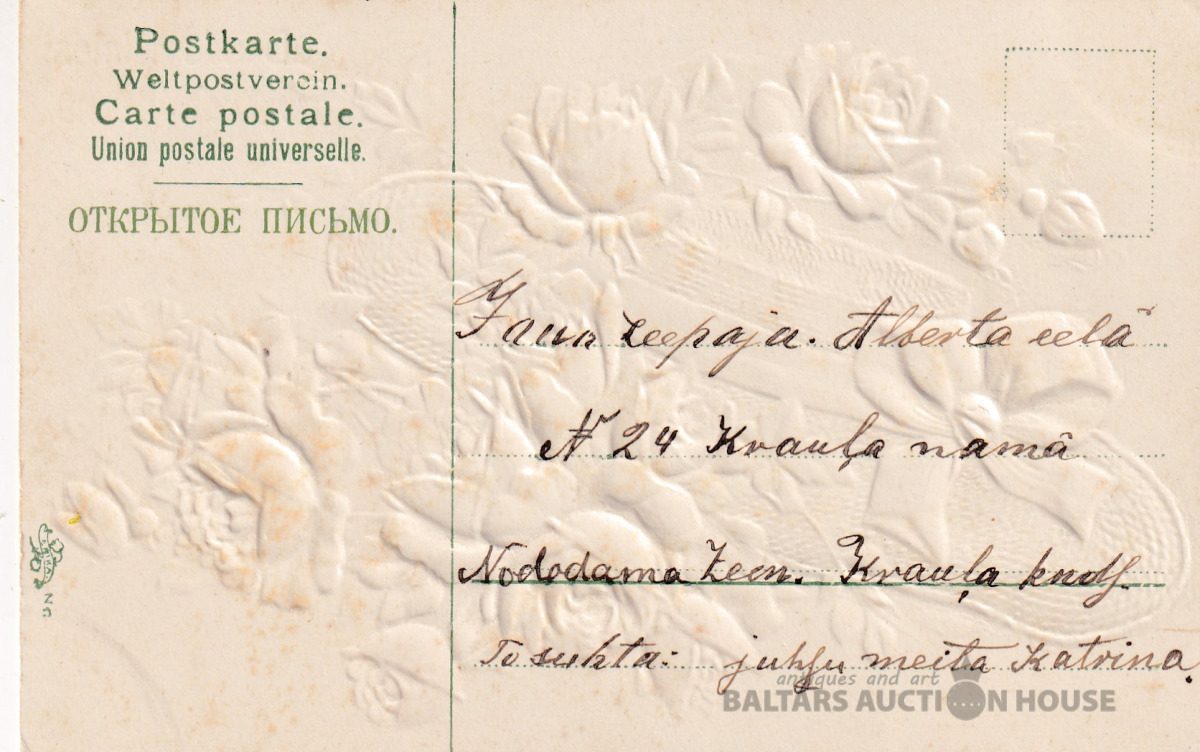 Postkarte.
Weltpostverein.
Carte postale.
Union postale universelle.
ОТКРЫТОЕ ПИСЬМО.
Leepaju. Alberta eelâ
N 24 Krauļa namâ
Nododama Zeen. Krauļa kndſ.
To suhta: juhſu meita Katrina.
antiques and art
BALTARS AUCTION HOUSE